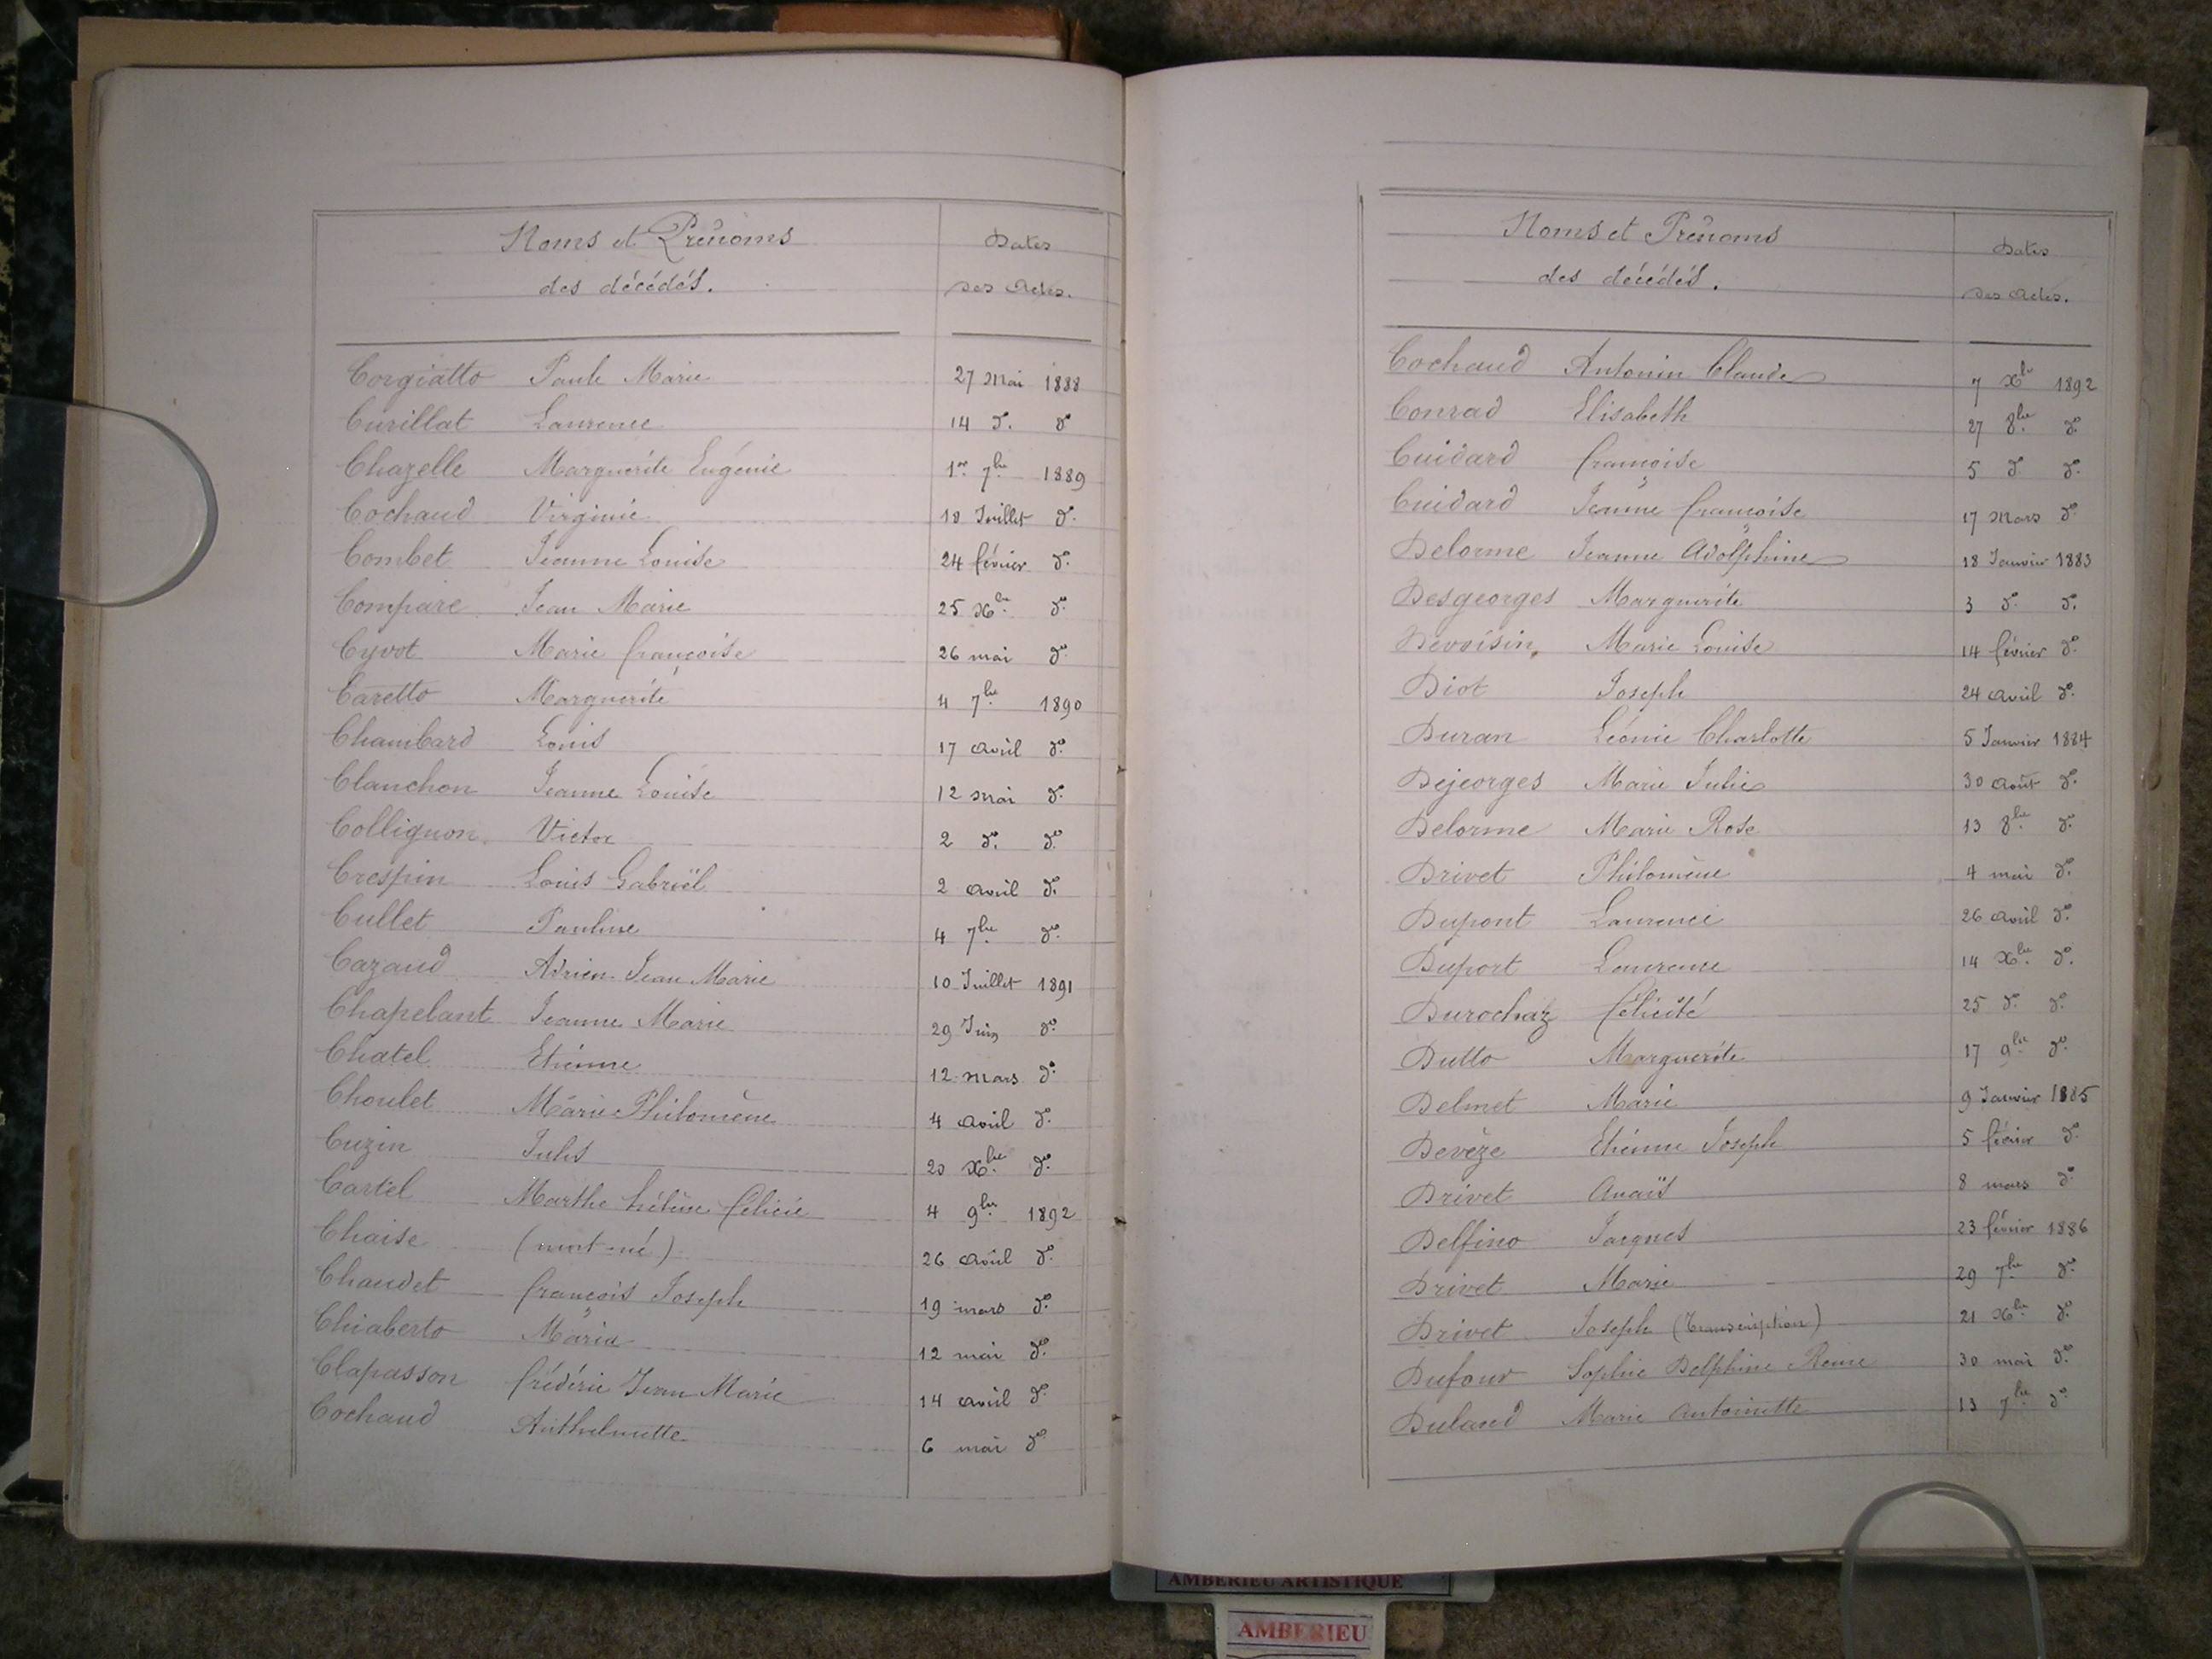 Noms et Prénoms
des décédés.
Dates
des Actes.
Corgiatto Paule Marie 27 Mai 1888
Curillat Laurence 14 do. do
Chazelle Marguerite Eugénie 1er 7bre 1889
Cochaud Virginie 18 Juillet do.
Combet Jeanne Louise 24 février do.
Compare Jean Marie 25 Xbre do.
Cyvot Marie françoise 26 mai do.
Caretto Marguerite 4 7bre 1890
Chambard Louis 17 avril do.
Clanchon Jeanne Louise 12 mai do.
Collignon Victor 2 do. do.
Crespin Louis Gabriël 2 avril do.
Cullet Pauline 4 7bre do.
Cazaud Adrien Jean Marie 10 Juillet 1891
Chapelant Jeanne Marie 29 Juin do.
Chatel Etienne 12 mars do.
Choulet Marie Philomène 4 avril do.
Cuzin Jules 20 Xbre do.
Cartel Marthe hélène félicie 4 9bre 1892
Chaise (mort-né) 26 avril do.
Chaudet françois Joseph 19 mars do.
Chiaberto Maria 12 mai do.
Clapasson frédéric Jean Marie 14 avril do.
Cochaud Anthelmette 6 mai do.
Noms et Prénoms
des décédés.
Dates
des Actes.
Cochaud Antonin Claude 7 Xbre 1892
Conrad Elisabeth 27 8bre do.
Cuidard françoise 5 do do.
Cuidard Jeanne françoise 17 mars do.
Delorme Jeanne Adolphine 18 Janvier 1883
Desgeorges Marguerite 3 do. do.
Devoisin Marie Louise 14 février do.
Diot Joseph 24 avril do.
Duran Léonie Charlotte 5 Janvier 1884
Dejeorges Marie Julie 30 août do.
Delorme Marie Rose 13 8bre do.
Drivet Philomène 4 mai do.
Dupont Laurence 26 avril do.
Duport Laurence 14 Xbre do.
Durochaz félicité 25 do. do.
Dutto Marguerite 17 9bre do.
Delmet Marie 9 Janvier 1885
Devèze Etienne Joseph 5 février do.
Drivet Anaïs 8 mars do.
Delfino Jacques 23 février 1886
Drivet Marie 29 7bre do.
Drivet Joseph (Transcription) 21 Xbre do.
Dufour Sophie Delphine Reine 30 mai do.
Dulaud Marie Antoinette 13 7bre do.
AMBERIEU ARTISTIQUE
AMBERIEU